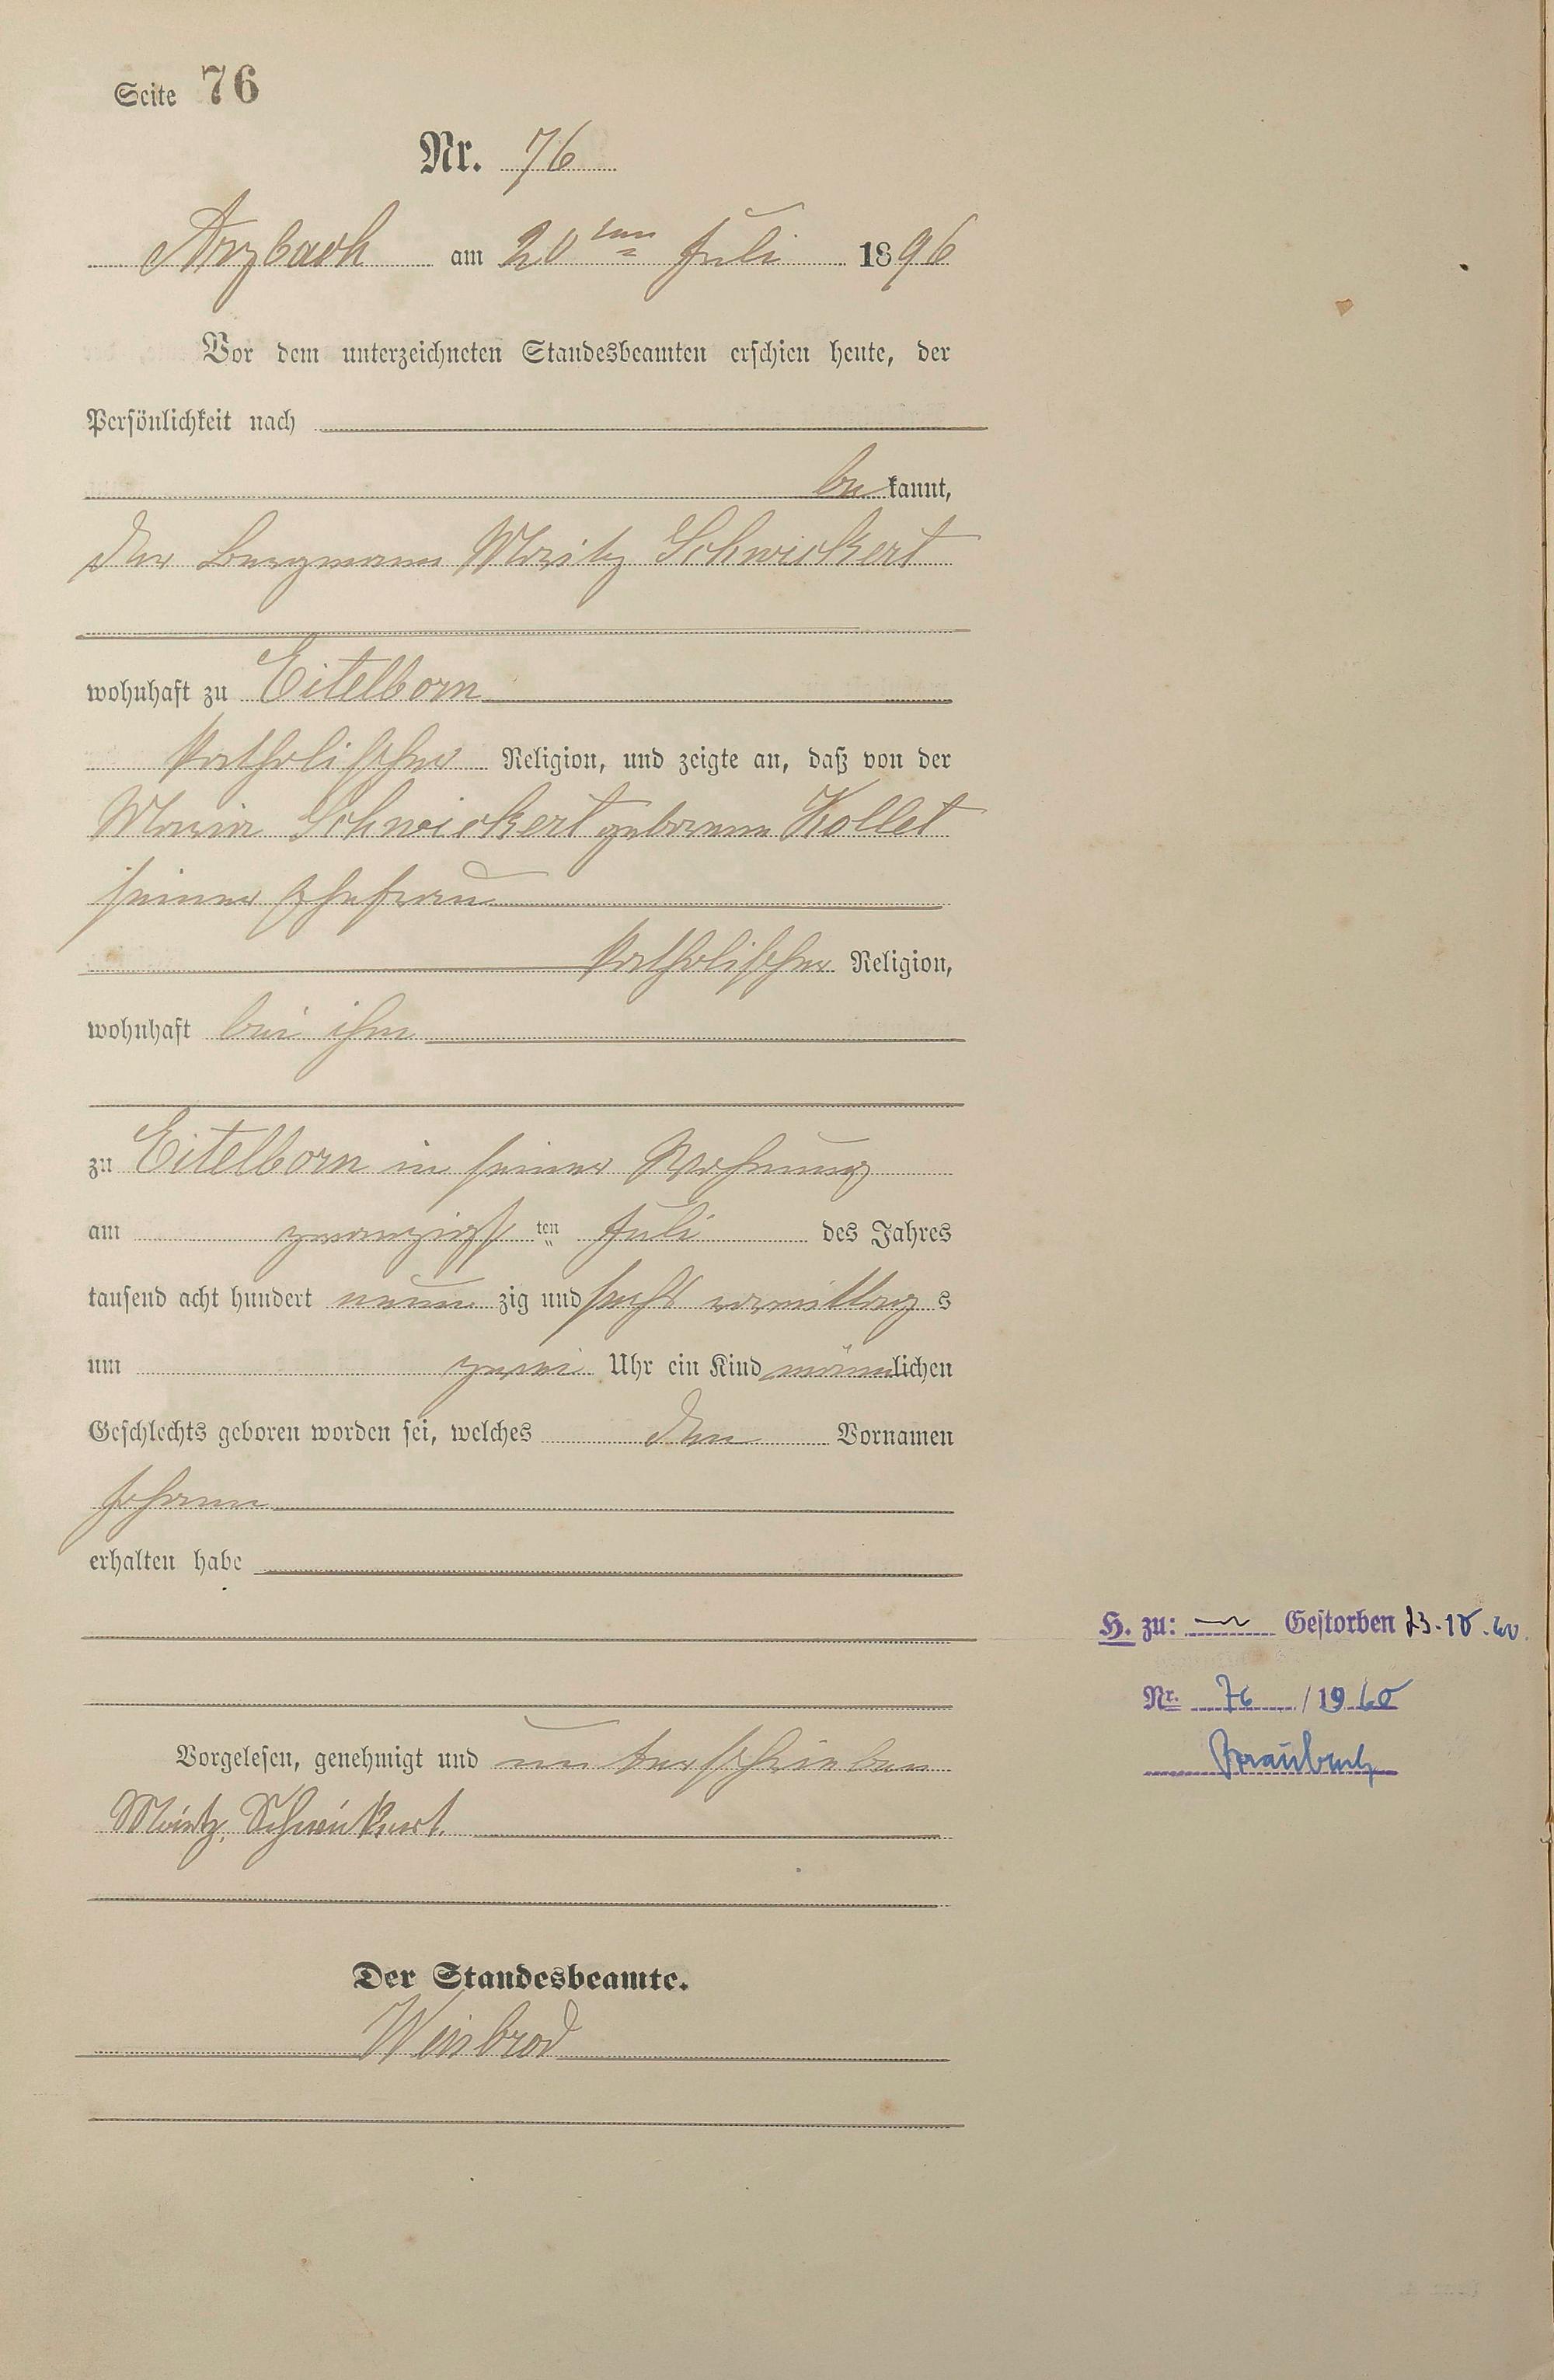 Seite 76
Nr. 76
Arzbach am 20ten Juli 1896
Vor dem unterzeichneten Standesbeamten erschien heute, der
Persönlichkeit nach
bekannt,
der Bergmann Moritz Schwickert
wohnhaft zu Eitelborn
katholischer Religion, und zeigte an, daß von der
Maria Schwickert geborene Kollet
seiner Ehefrau
katholischer Religion,
wohnhaft bei ihm
zu Eitelborn in seiner Wohnung
am zwanzigsten Juli des Jahres
tausend acht hundert neunzig und sechs vormittags
um zwei Uhr ein Kind männlichen
Geschlechts geboren worden sei, welches den Vornamen
Johann
erhalten habe
H. zu: Gestorben
Nr. 76/1960
Braubach
Vorgelesen, genehmigt und unterschrieben
Moritz Schwickert.
Der Standesbeamte.
Weisbrod